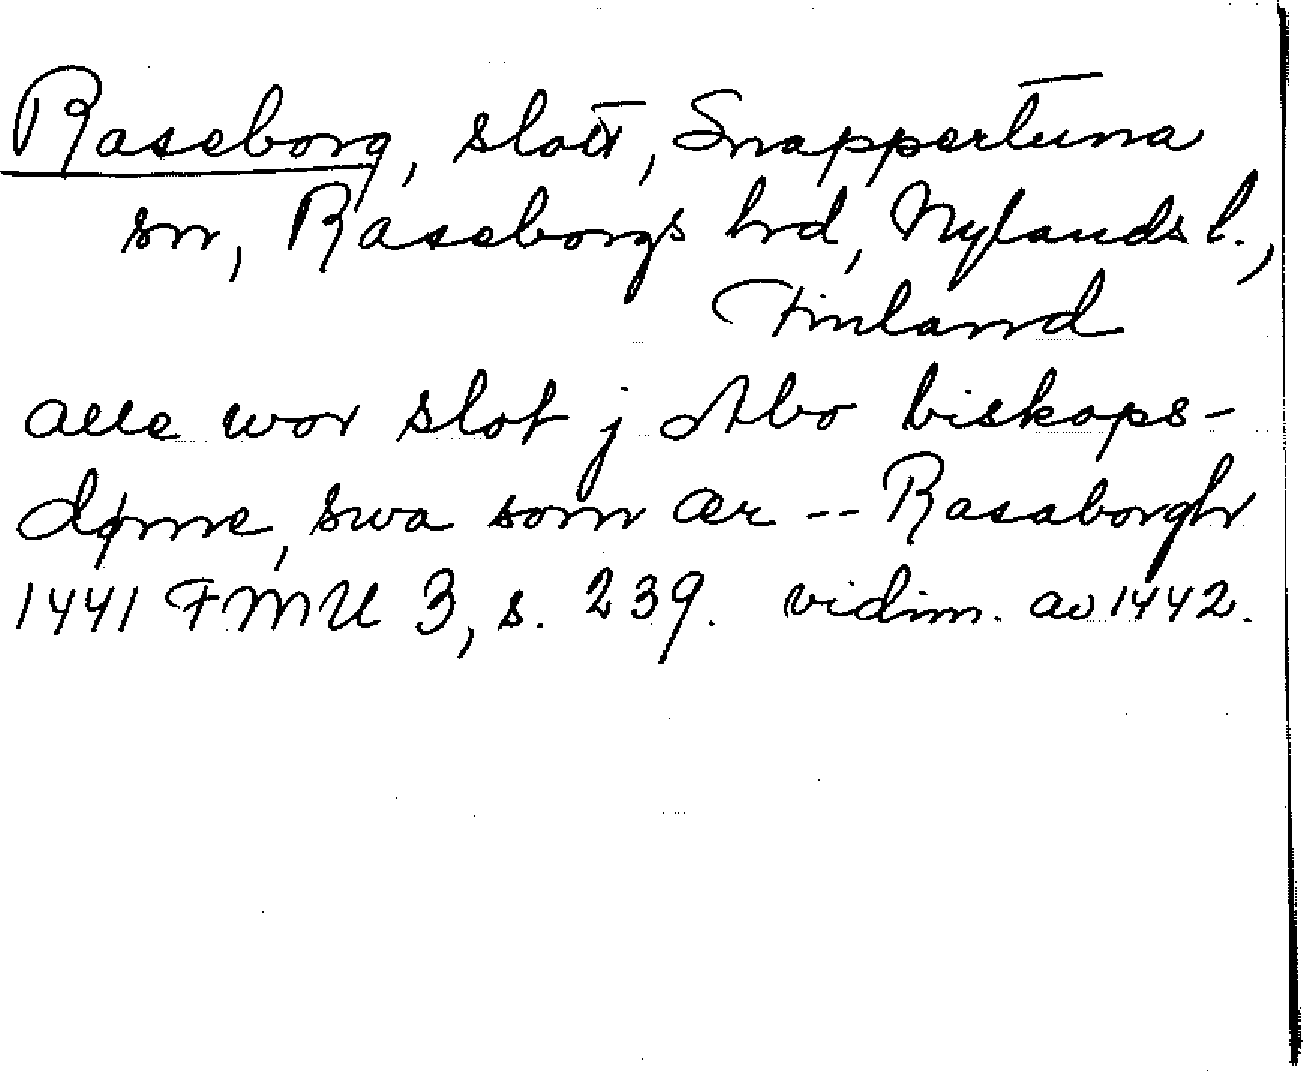 Raseborg, slott, Snappertuna
sn, Raseborgs hrd, Nylands l.,
Finland
alle wor slot j Abo biskops-
dømе, swa som ær -- Rasaborgh
1441 FMU 3, s. 239. vidim. av 1442.